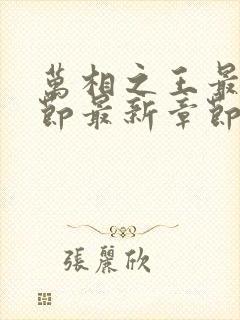 萬相之王最
節最新章節
張麗欣